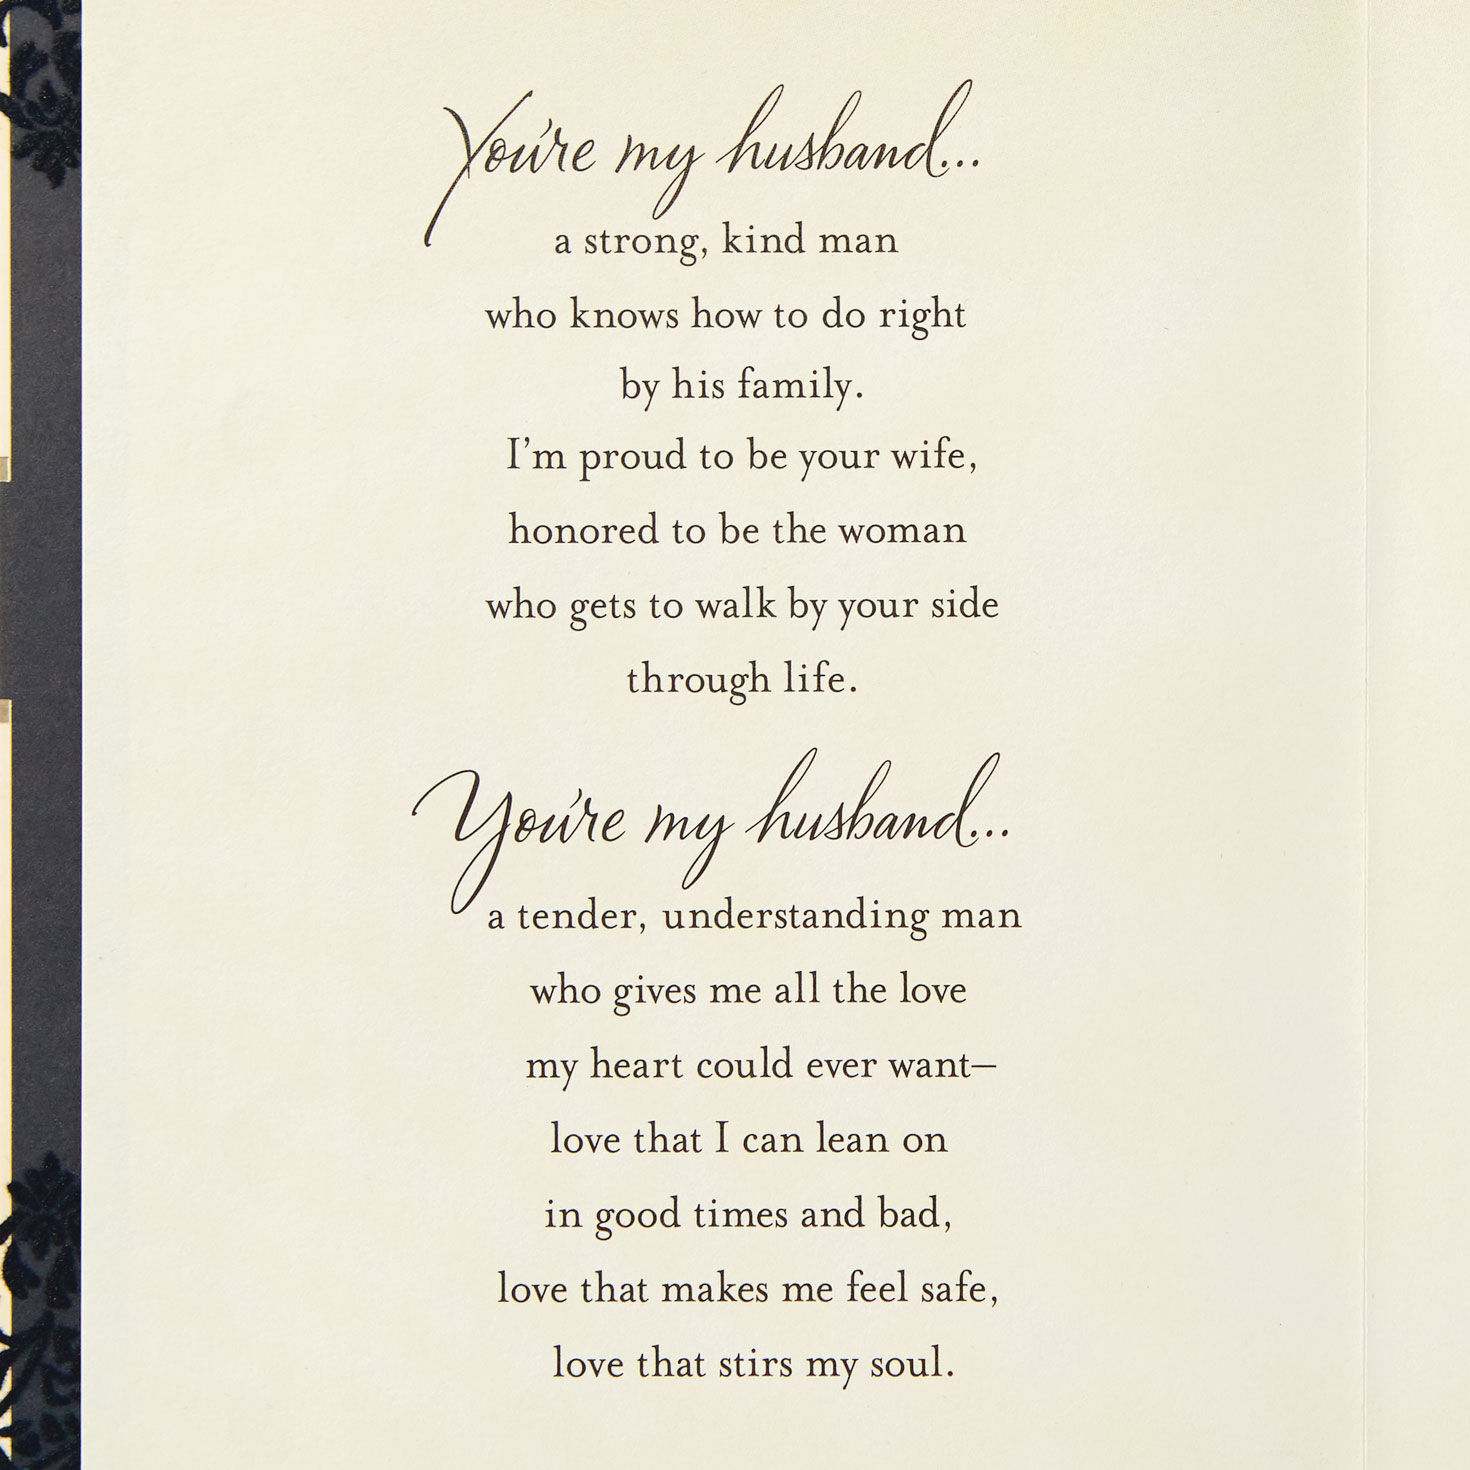 You're my husband...
a strong, kind man
who knows how to do right
by his family.
I'm proud to be your wife,
honored to be the woman
who gets to walk by your side
through life.
You're my husband...
a tender, understanding man
who gives me all the love
my heart could ever want—
love that I can lean on
in good times and bad,
love that makes me feel safe,
love that stirs my soul.